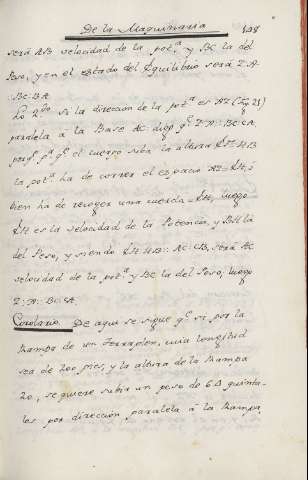 De la Maquinaria 108
será AB velocidad de la pot.ª y BC la del
Peso, y en el estado del Equilibrio será Z:A::
BC:BA.
Lo 2.do si la dirección de la pot.ª es AZ (Fig. 21)
paralela á la Base AC digo q.e Z:A::BC:CA
porq.e p.a q.e el cuerpo suba la altura HB
la pot.ª ha de correr el espacio AZ=FH, ó
bien ha de recoger una cuerda=FH, luego
FH es la velocidad de la Potencia, y BH la
del Peso, y siendo FH:HB::AC:CB, será AC
velocidad de la pot.ª y BC la del Peso, luego
Z:A::BC:CA.
Corolario. De aqui se sigue q.e si por la
Rampa de un Terraplen, cuia longitud
sea de 200 pies, y la altura de la Rampa
20, se quiere subir un peso de 60 quinta-
les por dirección paralela á la Rampa